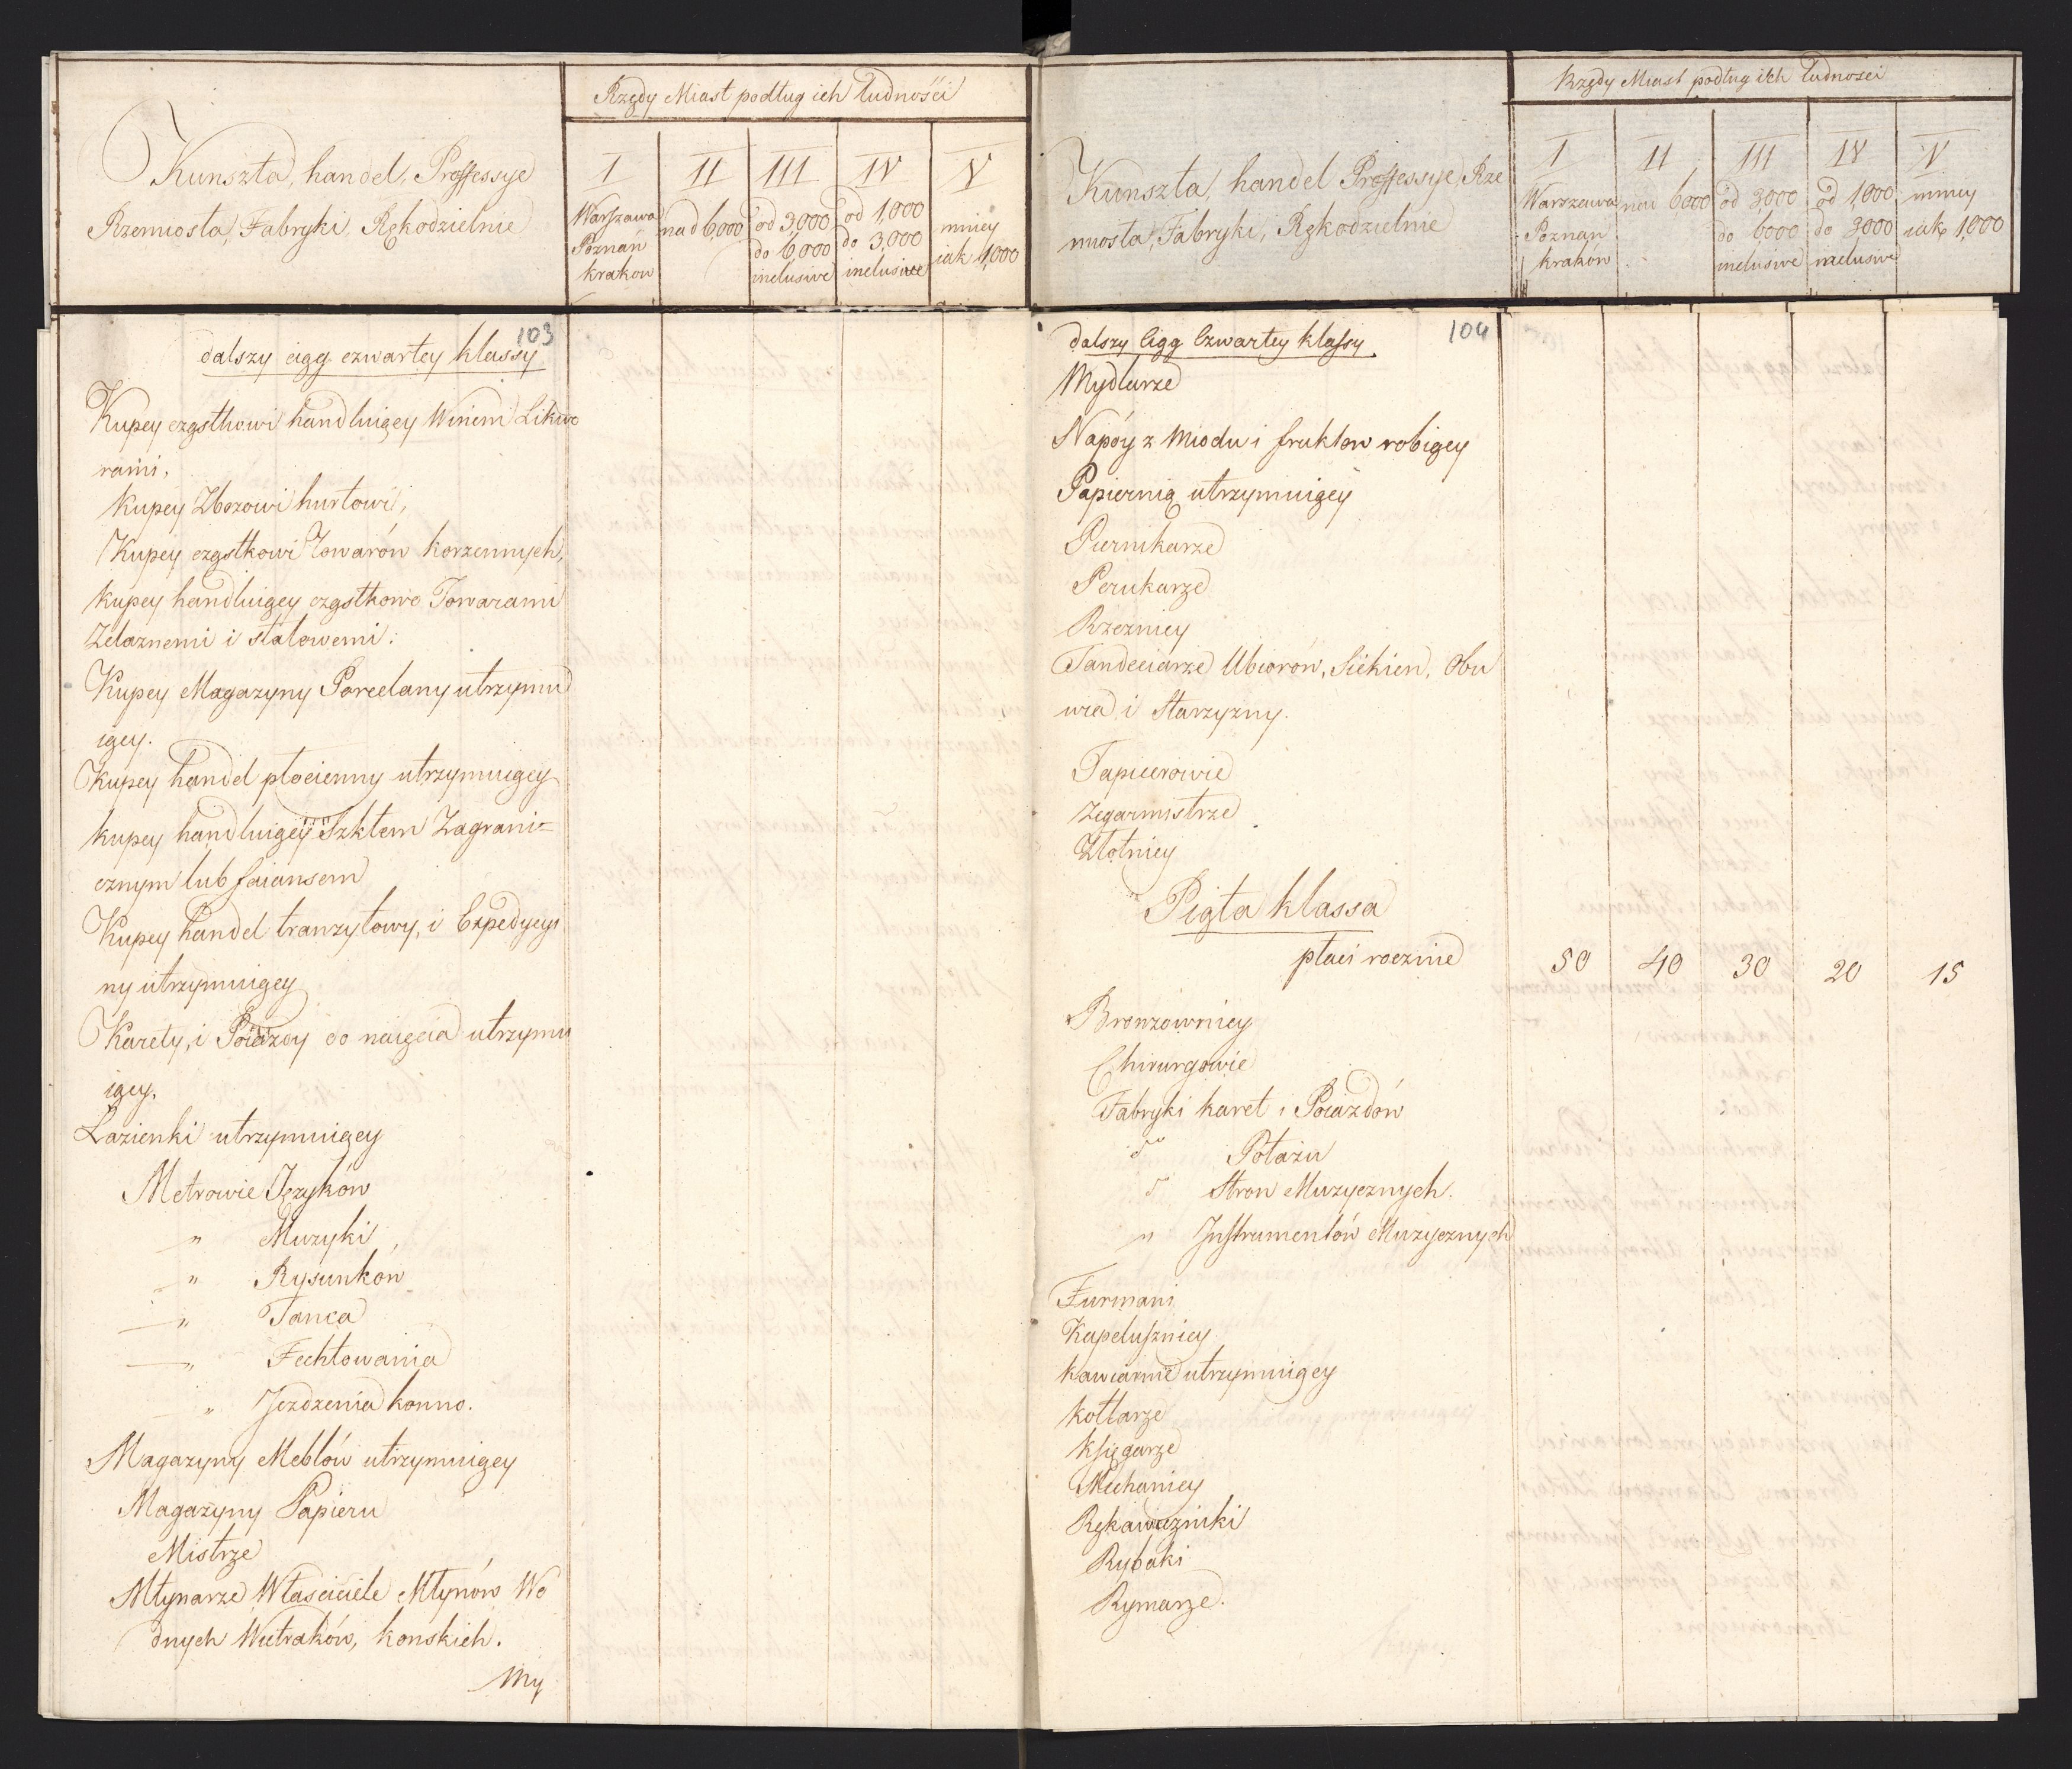 Kunszta, handel, Professye
Rzemiosła, Fabryki, Rękodzielnie
Rzędy Miast podług ich ludności
I
II
III
IV
V
Warszawa
Poznań
Krakow
nad 6,000
od 3,000
do 6,000
inclusive
od 1,000
do 3,000
inclusive
mniey
iak 1,000
103
dalszy ciąg czwartey klassy
Kupcy cząstkowi handluiący Winem Likwo
rami.
Kupcy Zbozowi hurtowi,
Kupcy cząstkowi Towarów korzennych,
Kupcy handluiący cząstkowo Towarami
Zelaznemi i stalowemi.
Kupcy Magazyny Porcelany utrzymu
iący.
Kupcy handel płocienny utrzymuiący
Kupcy handluiący Szkłem Zagrani=
cznym lub faiansem
Kupcy handel tranzytowy, i Expedycyi
ny utrzymuiący
Karety, i Poiazdy do naięcia utrzymu
iący.
Łazienki utrzymuiący
Metrowie Języków
" Muzyki
" Rysunków
" Tanca
" Fechtowania
" Jezdzenia konno.
Magazyny Meblów utrzymuiący
Magazyny Papieru
Mistrze
Młynarze Właściciele Młynów Wo
dnych Wiatraków, konskich.
My
Kunszta, handel Professye, Rze
miosła, Fabryki, Rękodzielnie
Rzędy Miast podług ich ludności
I
II
III
IV
V
Warszawa
Poznań
Kraków
nad 6000
od 3,000
do 6000
inclusive
od 1,000
do 3000
inclusive
mniey
iak 1,000
104
dalszy Ciąg Czwartey klassy
Mydlarze
Napóy z Miodu i fruktow robiący
Papiernią utrzymuiący
Piernikarze
Perukarze
Rzeznicy
Tandeciarze Ubiorów, Sukien, Obu
wia i Starzyzny.
Tapicerowie
Zegarmistrze
Złotnicy
Piąta klassa
płaci rocznie 50 40 30 20 15
Bronzownicy
Chirurgowie
Fabryki karet i Poiazdów
do Potażu
do Stron Muzycznych.
" Instrumentów Muzycznych
Furmani
Kapelusznicy
Kawiarnie utrzymuiący
Kotlarze
Księgarze
Mechanicy
Rękawiczniki
Rybaki
Rymarze.